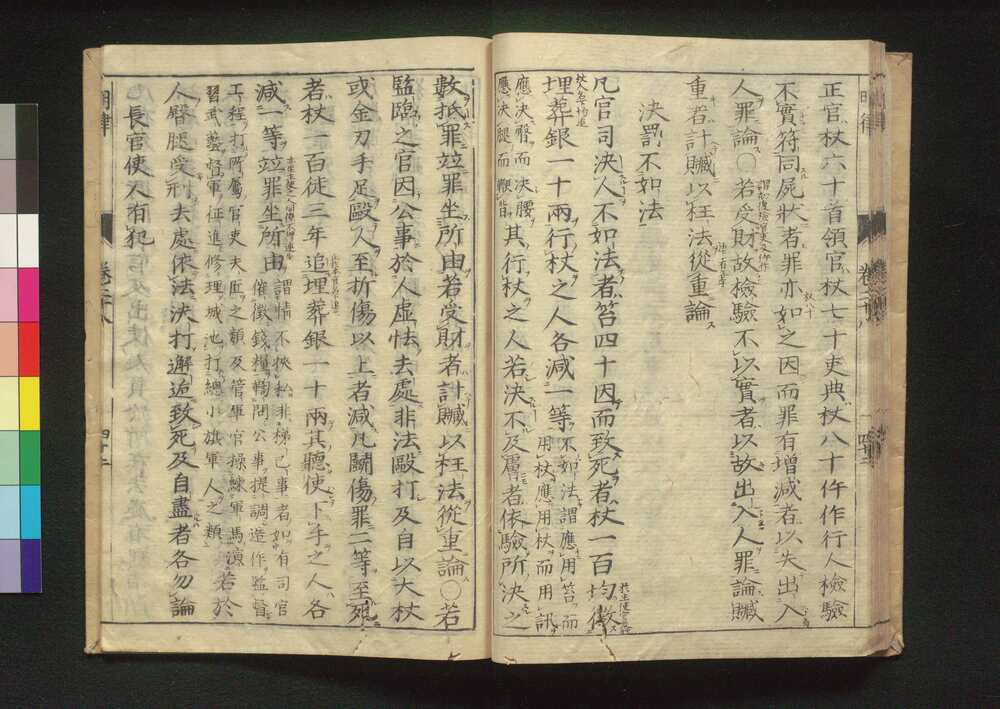 正官杖六十首領官杖七十吏典杖八十仵作行人檢驗
不實符同屍狀者罪亦如之因而罪有增減者以失出入
人罪論○若受財故檢驗不以實者以故出入人罪論贓
重者計贓以枉法從重論
決罰不如法
凡官司決人不如法者笞四十因而致死者杖一百均徵
埋葬銀一十兩行杖之人各減一等不如法謂應用笞而用杖應用杖而用訊
應決臀而決腰應決腿而鞭背其行杖之人若決不及膚者依驗所決之
數抵罪並罪坐所由若受財者計贓以枉法從重論○若
監臨之官因公事於人虛怯去處非法毆打及自以大杖
或金刃手足毆人至折傷以上者減凡鬪傷罪二等至死
者杖一百徒三年追埋葬銀一十兩其聽使下手之人各
減一等並罪坐所由謂情不挾私非梯己事者如有司官催徵錢糧鞫問公事提調造作監督
工程打所屬官吏夫匠之類及管軍官操練軍馬演習武藝督軍征進修理城池打總小旗軍人之類若於
人臀腿受刑去處依法決打邂逅致死及自盡者各勿論
長官使人有犯
明律
卷二十八
四十二